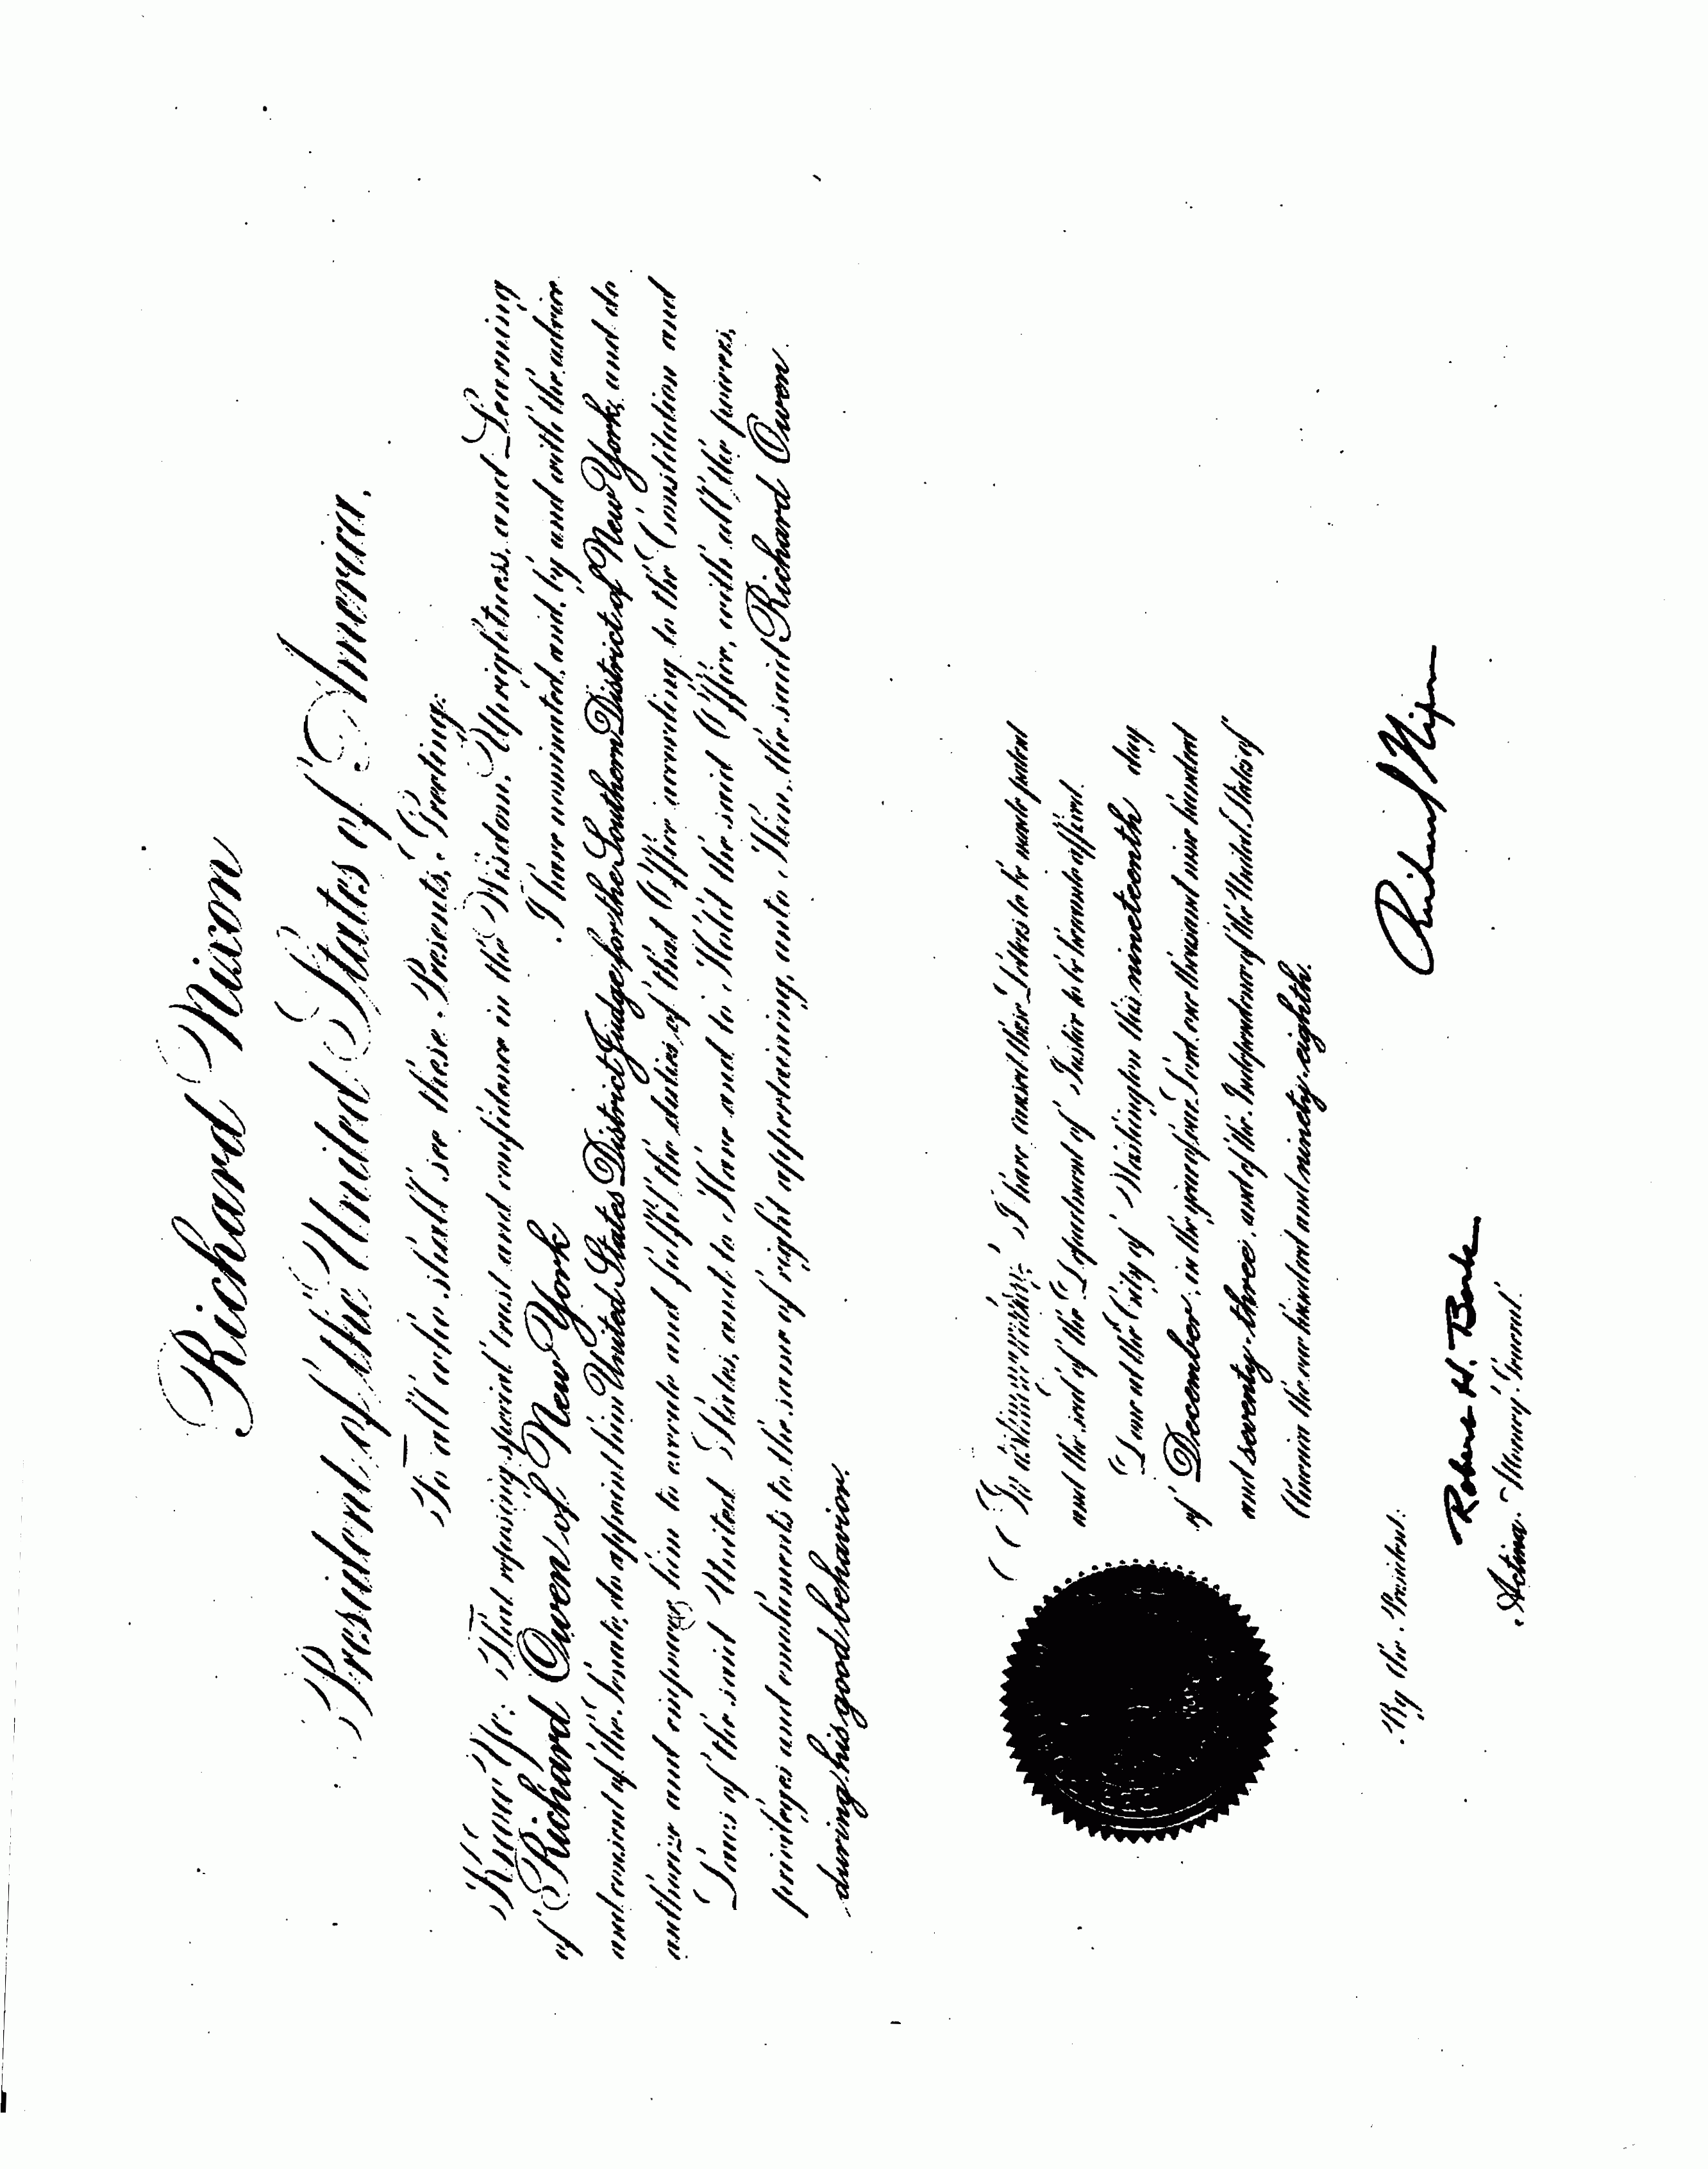 Richard Nixon
President of the United States of America,
To all who shall see these Presents, Greeting:
Know Ye: That reposing special trust and confidence in the Wisdom, Uprightness, and Learning
of Richard Owen of New York I have nominated, and, by and with the advice
and consent of the Senate, do appoint him United States District Judge for the Southern District of New York, and do
authorize and empower him to execute and fulfil the duties of that Office according to the Constitution and
Laws of the said United States, and to Have and to Hold the said Office, with all the powers,
privileges and emoluments to the same of right appertaining, unto Him, the said Richard Owen
during his good behavior.
In testimony whereof, I have caused these Letters to be made patent
and the seal of the Department of Justice to be hereunto affixed.
Done at the City of Washington this nineteenth day
of December, in the year of our Lord one thousand nine hundred
and seventy-three, and of the Independence of the United States of
America the one hundred and ninety-eighth.
Richard Nixon
By the President:
Robert H. Bork
Acting Attorney General.